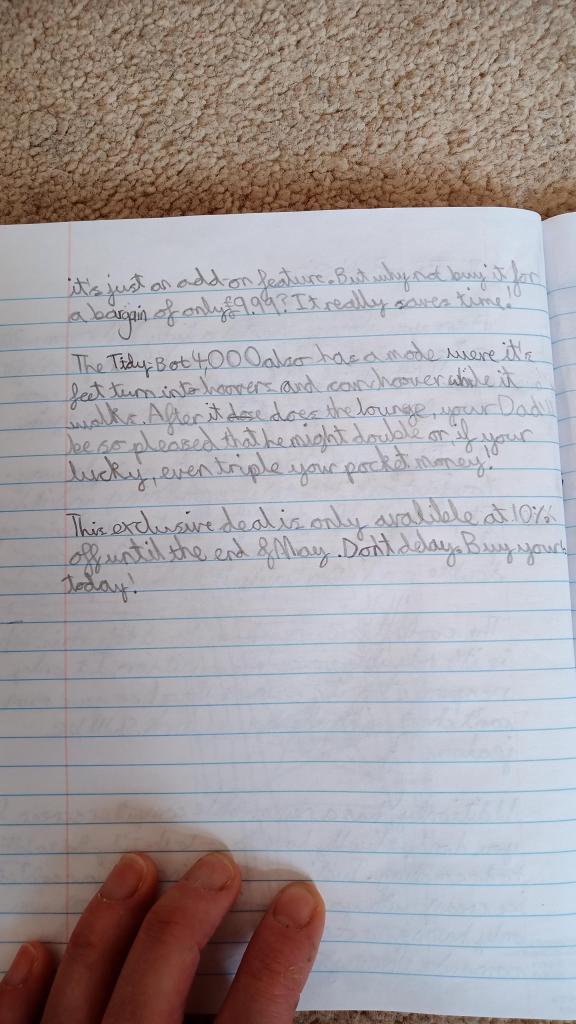 it's just an add-on feature. But why not buy it for
a bargain of only £9.99? It really saves time!
The Tidy-Bot 4,000 also has a mode were it's
feet turn into hoovers and can hoover while it
walks. After it does the lounge, your Dad'll
be so pleased that he might double or if your
lucky, even triple your pocket money!
This exclusive deal is only avalible at 10%
off until the end of May. Don't delay. Buy yours
today!